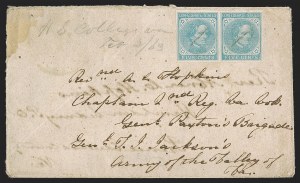 H. S. Colleg
Feb 3/63
FIVE CENTS FIVE CENTS
Rev^nd A. C. Hopkins
Chaplain 2^nd Reg. Va Vols.
Genl. Paxton's Brigade
Genl. T. J. Jackson's
Army of the Valley of
Va.